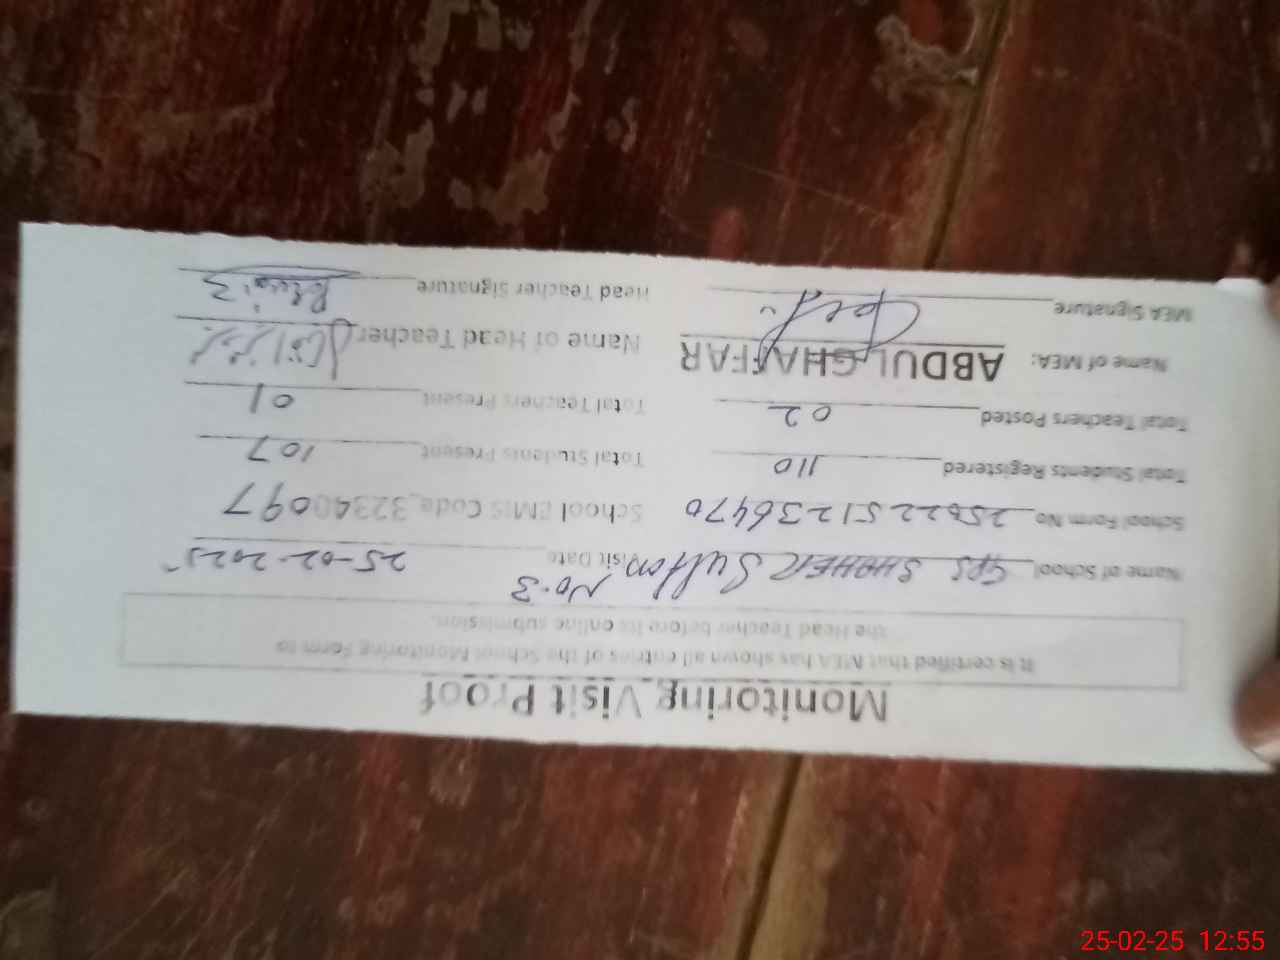 Monitoring Visit Proof
It is certified that MEA has shown all entries of the School Monitoring Form to
the Head Teacher before its online submission.
Name of School GPS SHAHER Sultan No.3 Visit Date 25-02-2025
School Form No 2502251236470 School EMIS Code 32340097
Total Students Registered 110 Total Students Present 107
Total Teachers Posted 02 Total Teachers Present 01
Name of MEA: ABDUL GHAFFAR Name of Head Teacher
MEA Signature Head Teacher Signature
25-02-25 12:55